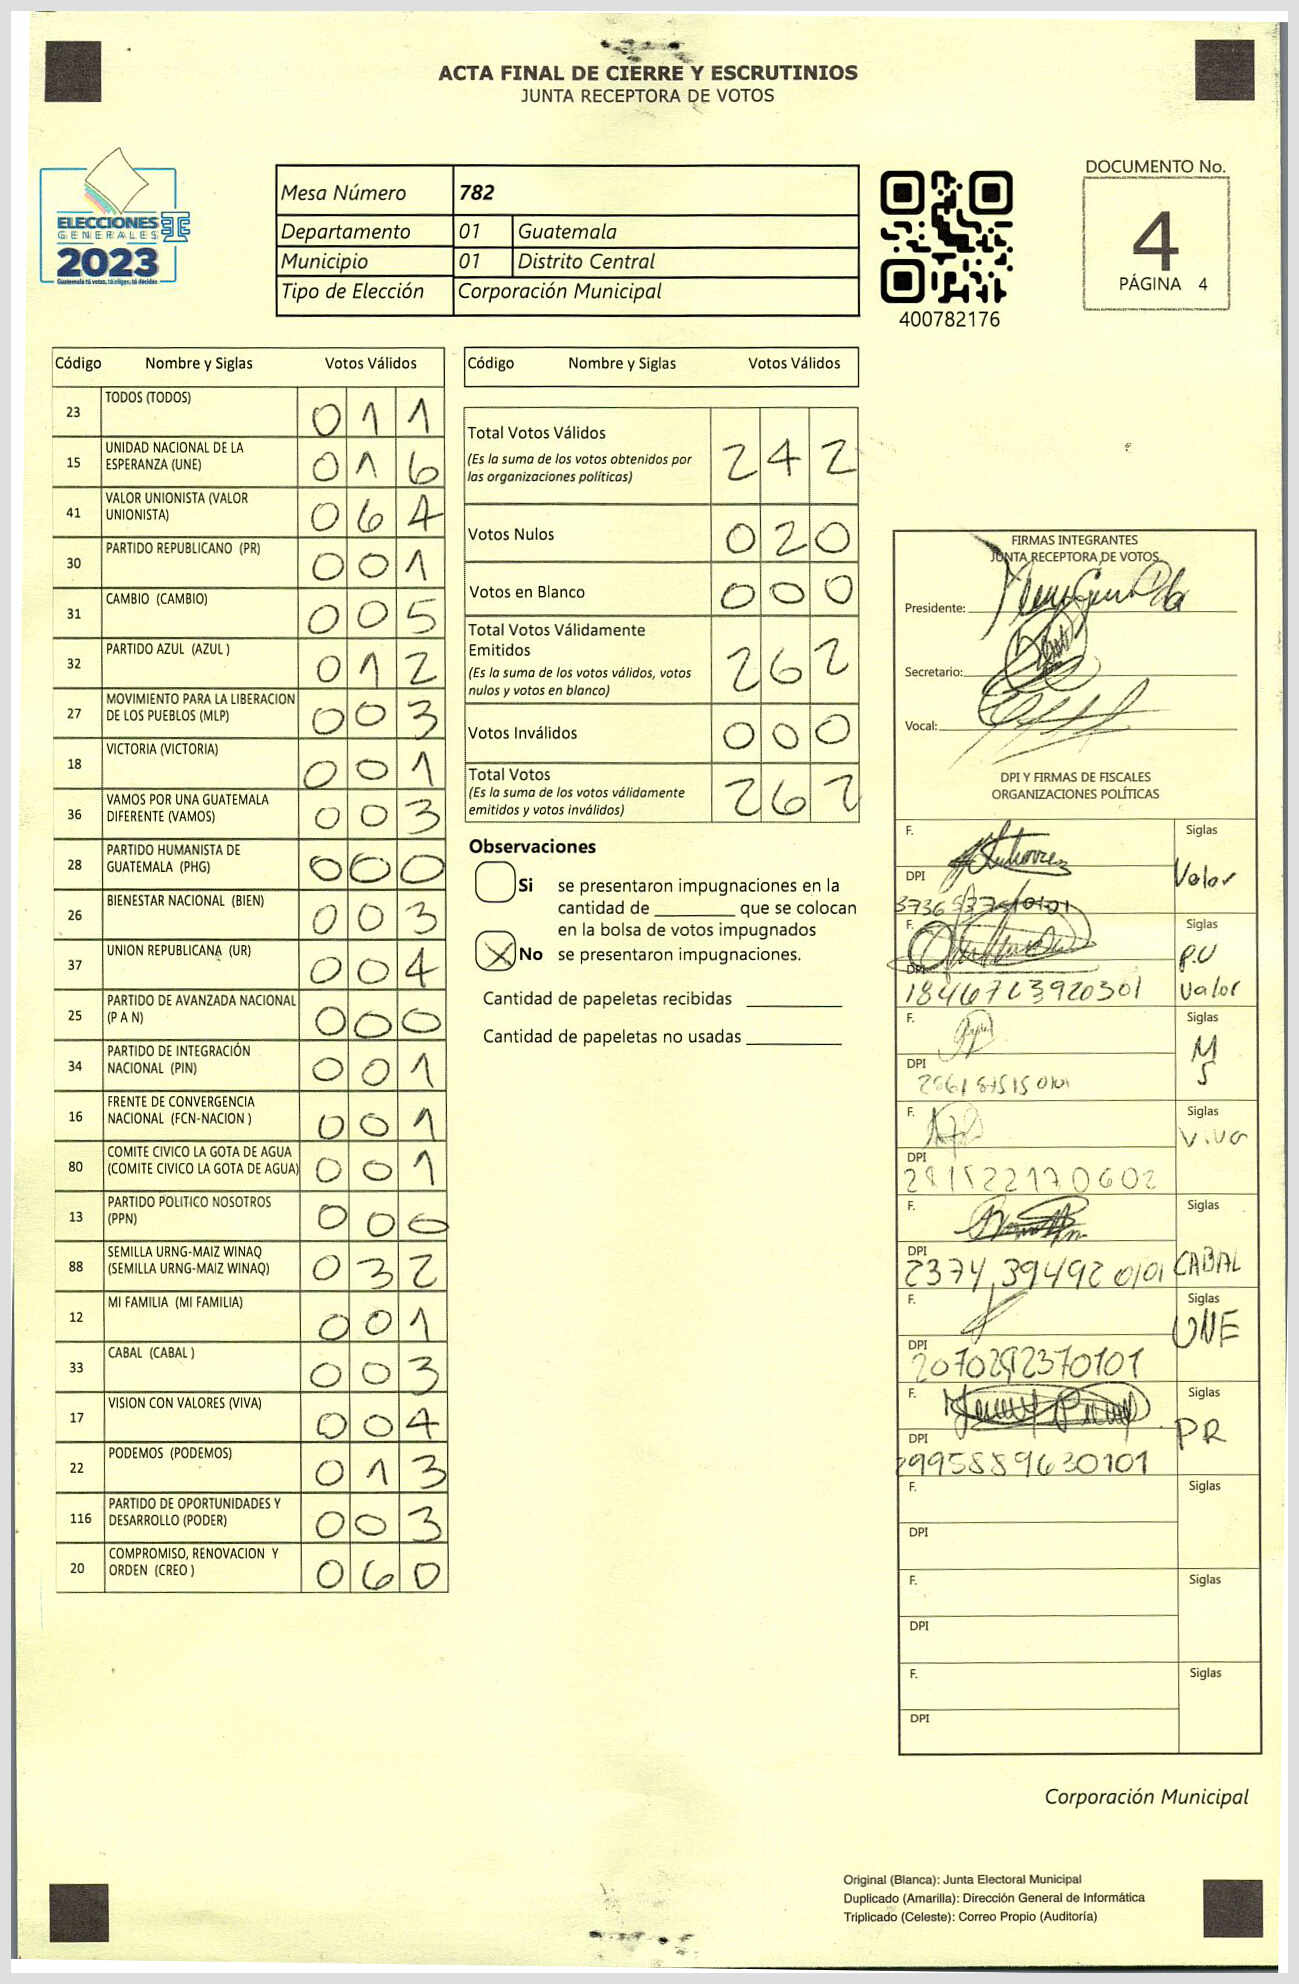 ACTA FINAL DE CIERRE Y ESCRUTINIOS
JUNTA RECEPTORA DE VOTOS
ELECCIONES
GENERALES
2023
Guatemala tú votas, tú eliges, tú decides
Mesa Número 782
Departamento 01 Guatemala
Municipio 01 Distrito Central
Tipo de Elección Corporación Municipal
400782176
DOCUMENTO No.
4
PÁGINA 4
Código Nombre y Siglas Votos Válidos
23 TODOS (TODOS) 0 1 1
15 UNIDAD NACIONAL DE LA
ESPERANZA (UNE) 0 1 6
41 VALOR UNIONISTA (VALOR
UNIONISTA) 0 6 4
30 PARTIDO REPUBLICANO (PR) 0 0 1
31 CAMBIO (CAMBIO) 0 0 5
32 PARTIDO AZUL (AZUL ) 0 1 2
27 MOVIMIENTO PARA LA LIBERACION
DE LOS PUEBLOS (MLP) 0 0 3
18 VICTORIA (VICTORIA) 0 0 1
36 VAMOS POR UNA GUATEMALA
DIFERENTE (VAMOS) 0 0 3
28 PARTIDO HUMANISTA DE
GUATEMALA (PHG) 0 0 0
26 BIENESTAR NACIONAL (BIEN) 0 0 3
37 UNION REPUBLICANA (UR) 0 0 4
25 PARTIDO DE AVANZADA NACIONAL
(P A N) 0 0 0
34 PARTIDO DE INTEGRACIÓN
NACIONAL (PIN) 0 0 1
16 FRENTE DE CONVERGENCIA
NACIONAL (FCN-NACION ) 0 0 1
80 COMITE CIVICO LA GOTA DE AGUA
(COMITE CIVICO LA GOTA DE AGUA) 0 0 1
13 PARTIDO POLITICO NOSOTROS
(PPN) 0 0 0
88 SEMILLA URNG-MAIZ WINAQ
(SEMILLA URNG-MAIZ WINAQ) 0 3 2
12 MI FAMILIA (MI FAMILIA) 0 0 1
33 CABAL (CABAL ) 0 0 3
17 VISION CON VALORES (VIVA) 0 0 4
22 PODEMOS (PODEMOS) 0 1 3
116 PARTIDO DE OPORTUNIDADES Y
DESARROLLO (PODER) 0 0 3
20 COMPROMISO, RENOVACION Y
ORDEN (CREO ) 0 6 0
Código Nombre y Siglas Votos Válidos
Total Votos Válidos
(Es la suma de los votos obtenidos por
las organizaciones políticas) 2 4 2
Votos Nulos 0 2 0
Votos en Blanco 0 0 0
Total Votos Válidamente
Emitidos
(Es la suma de los votos válidos, votos
nulos y votos en blanco) 2 6 2
Votos Inválidos 0 0 0
Total Votos
(Es la suma de los votos válidamente
emitidos y votos inválidos) 2 6 2
Observaciones
Si se presentaron impugnaciones en la
cantidad de ________ que se colocan
en la bolsa de votos impugnados
X No se presentaron impugnaciones.
Cantidad de papeletas recibidas
Cantidad de papeletas no usadas
FIRMAS INTEGRANTES
JUNTA RECEPTORA DE VOTOS
Presidente:
Secretario:
Vocal:
DPI Y FIRMAS DE FISCALES
ORGANIZACIONES POLÍTICAS
F. Siglas
DPI Valor
F. Siglas
DPI P.U
Valor
F. Siglas
DPI M
S
F. Siglas
DPI Viva
F. Siglas
DPI CABAL
2374 39492 0101
F. Siglas
DPI UNE
2070292370101
F. Siglas
DPI PR
F. Siglas
DPI
F. Siglas
DPI
F. Siglas
DPI
Corporación Municipal
Original (Blanca): Junta Electoral Municipal
Duplicado (Amarilla): Dirección General de Informática
Triplicado (Celeste): Correo Propio (Auditoría)